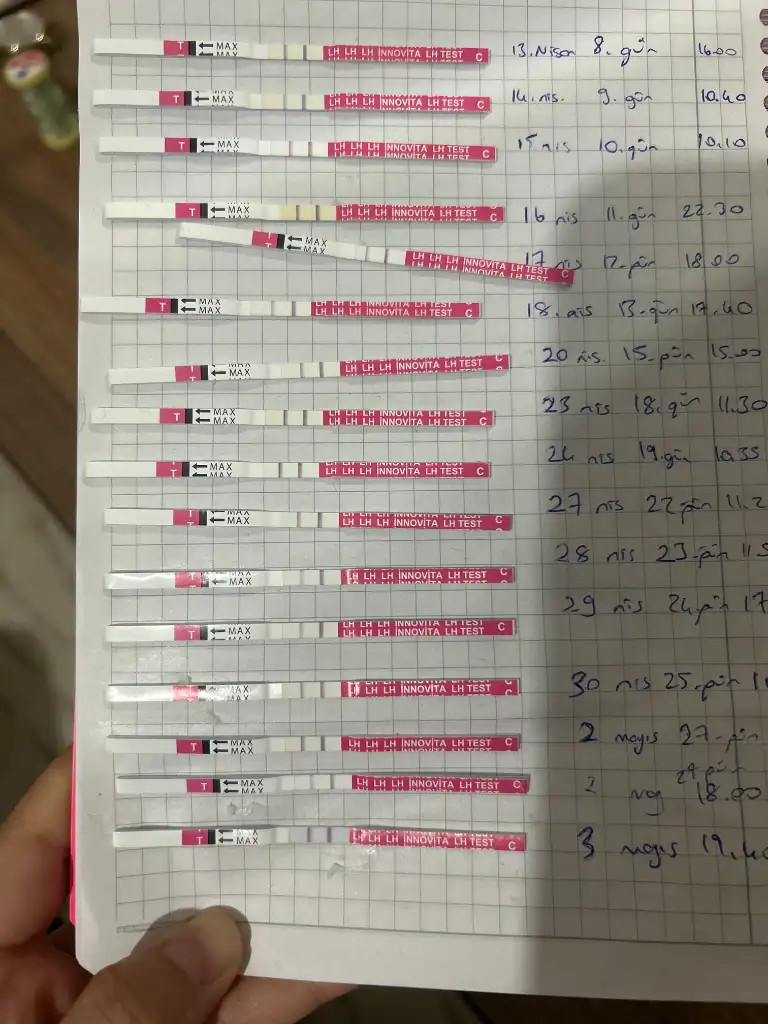 T MAX MAX LH LH LH INNOVİTA LH TEST C 13. Nisan 8. gün 16.00
T MAX MAX LH LH LH INNOVİTA LH TEST C 14. nis. 9. gün 10.40
T MAX MAX LH LH LH INNOVİTA LH TEST C 15 nis 10. gün 10.10
T MAX MAX LH LH LH INNOVİTA LH TEST C 16 nis 11. gün 22.30
T MAX MAX LH LH LH INNOVİTA LH TEST C 17 nis 12. gün 18.00
T MAX MAX LH LH LH INNOVİTA LH TEST C 18. nis 13. gün 17.40
T MAX MAX LH LH LH INNOVİTA LH TEST C 20 nis. 15. gün 15.00
T MAX MAX LH LH LH INNOVİTA LH TEST C 23 nis 18. gün 11.30
T MAX MAX LH LH LH INNOVİTA LH TEST C 24 nis 19. gün 10.35
T MAX MAX LH LH LH INNOVİTA LH TEST C 27 nis 22. gün 11.2
T MAX MAX LH LH LH INNOVİTA LH TEST C 28 nis 23. gün
T MAX MAX LH LH LH INNOVİTA LH TEST C 29 nis 24. gün 17
T MAX MAX LH LH LH INNOVİTA LH TEST C 30 nis 25. gün
T MAX MAX LH LH LH INNOVİTA LH TEST C 2 mayıs 27. gün
T MAX MAX LH LH LH INNOVİTA LH TEST C 2 may 27. gün 18.00
T MAX MAX LH LH LH INNOVİTA LH TEST C 3 mayıs 19.40